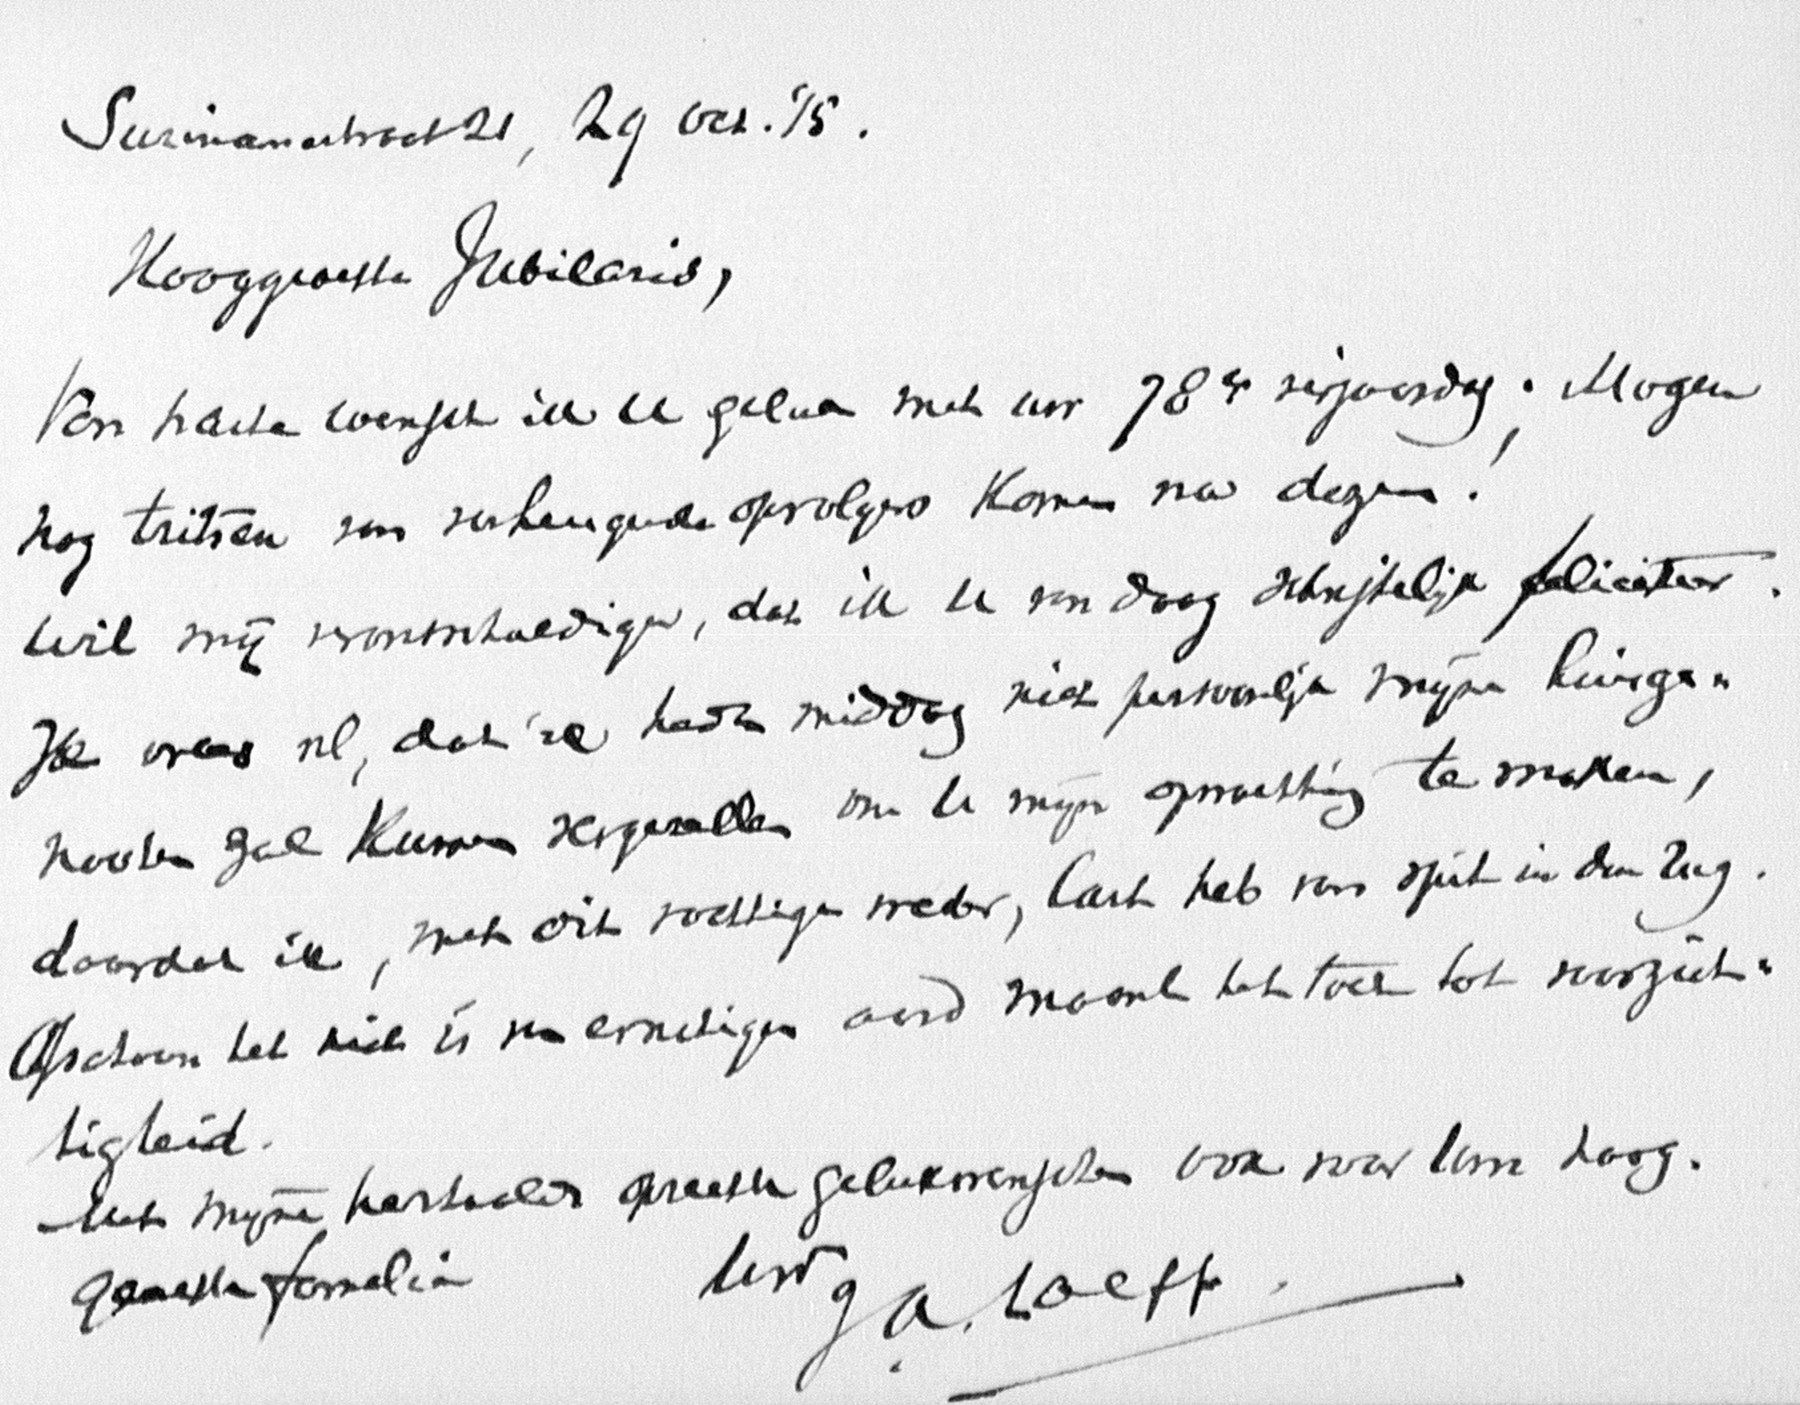 Surinamestraat 21, 29 Oct. '15.
Hooggeachte Jubilaris,
Van harte wensch ik U geluk met uw 78er verjaardag; Mogen
nog tritsen van verheugende opvolgers komen na dezen!
Wil mij verontschuldigen, dat ik U van daag schriftelijk feliciteer.
Ik vrees nl, dat ik heden middag niet persoonlijk mijne huisge"
nooten zal kunnen vergezellen om U mijn opwachting te maken,
doordat ik, met dit vochtige weder, last heb van spit in den rug.
Ofschoon het niet is van ernstigen aard maant het toch tot voorzich"
tigheid.
Met mijne herhaalde oprechte gelukwenschen ook voor Uwe hoog.
geachte familie Uw
J. A. Loeff.